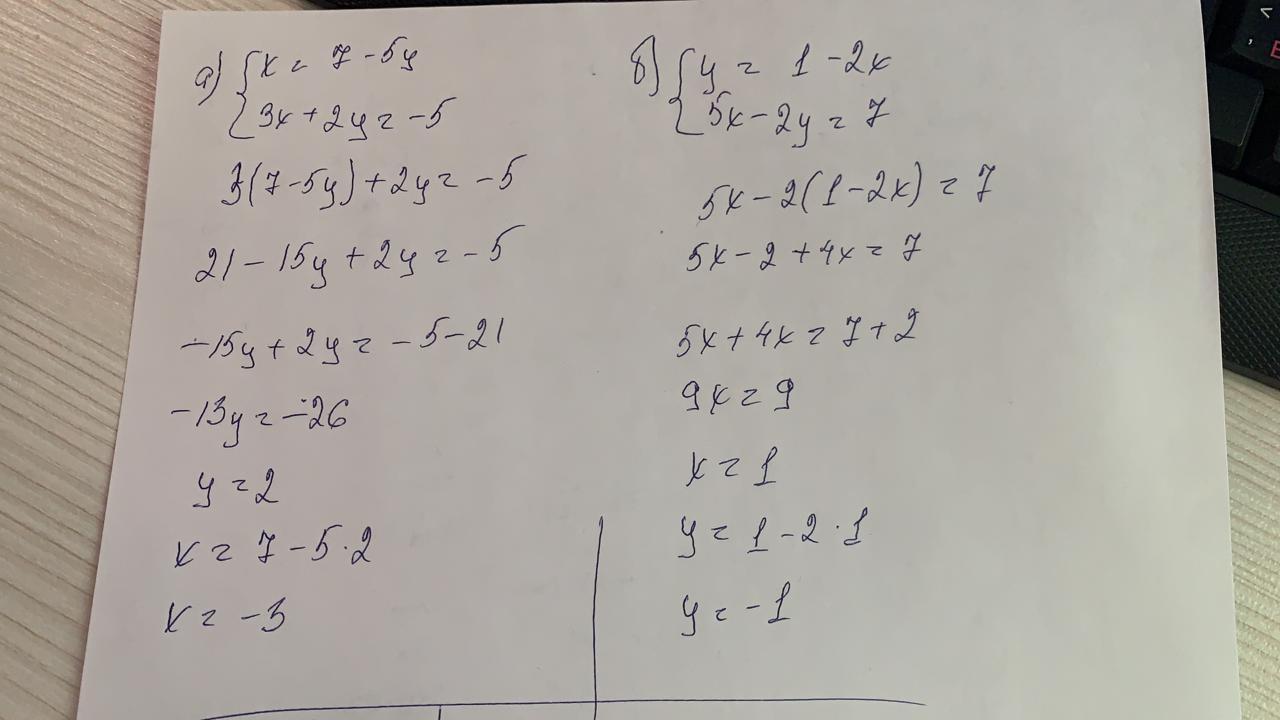 а) { x = 7 - 5y
3x + 2y = -5
3(7 - 5y) + 2y = -5
21 - 15y + 2y = -5
-15y + 2y = -5 - 21
-13y = -26
y = 2
x = 7 - 5·2
x = -3
б) { y = 1 - 2x
5x - 2y = 7
5x - 2(1 - 2x) = 7
5x - 2 + 4x = 7
5x + 4x = 7 + 2
9x = 9
x = 1
y = 1 - 2·1
y = -1